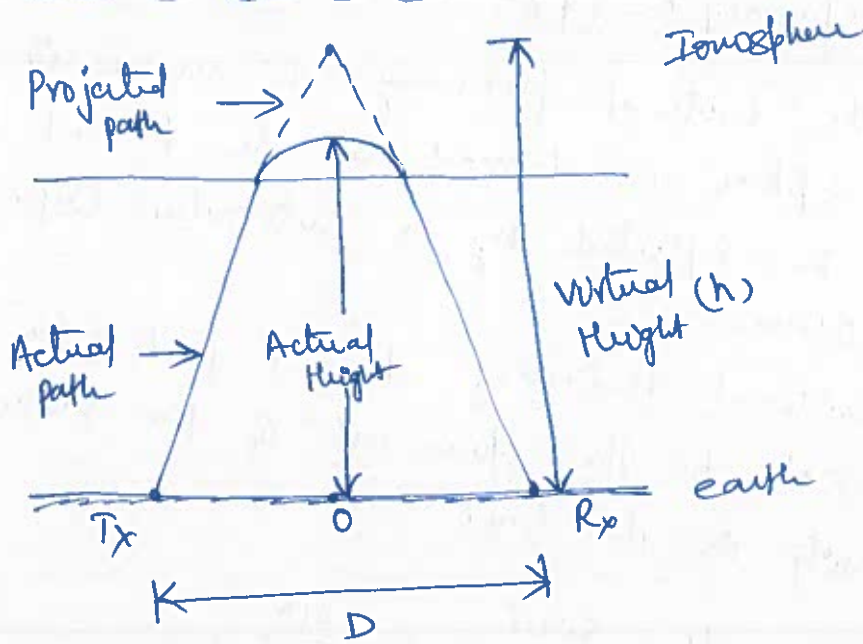 Ionosphere
Projected
path
Virtual (h)
Height
Actual
path
Actual
Height
earth
Tx
O
Rx
D